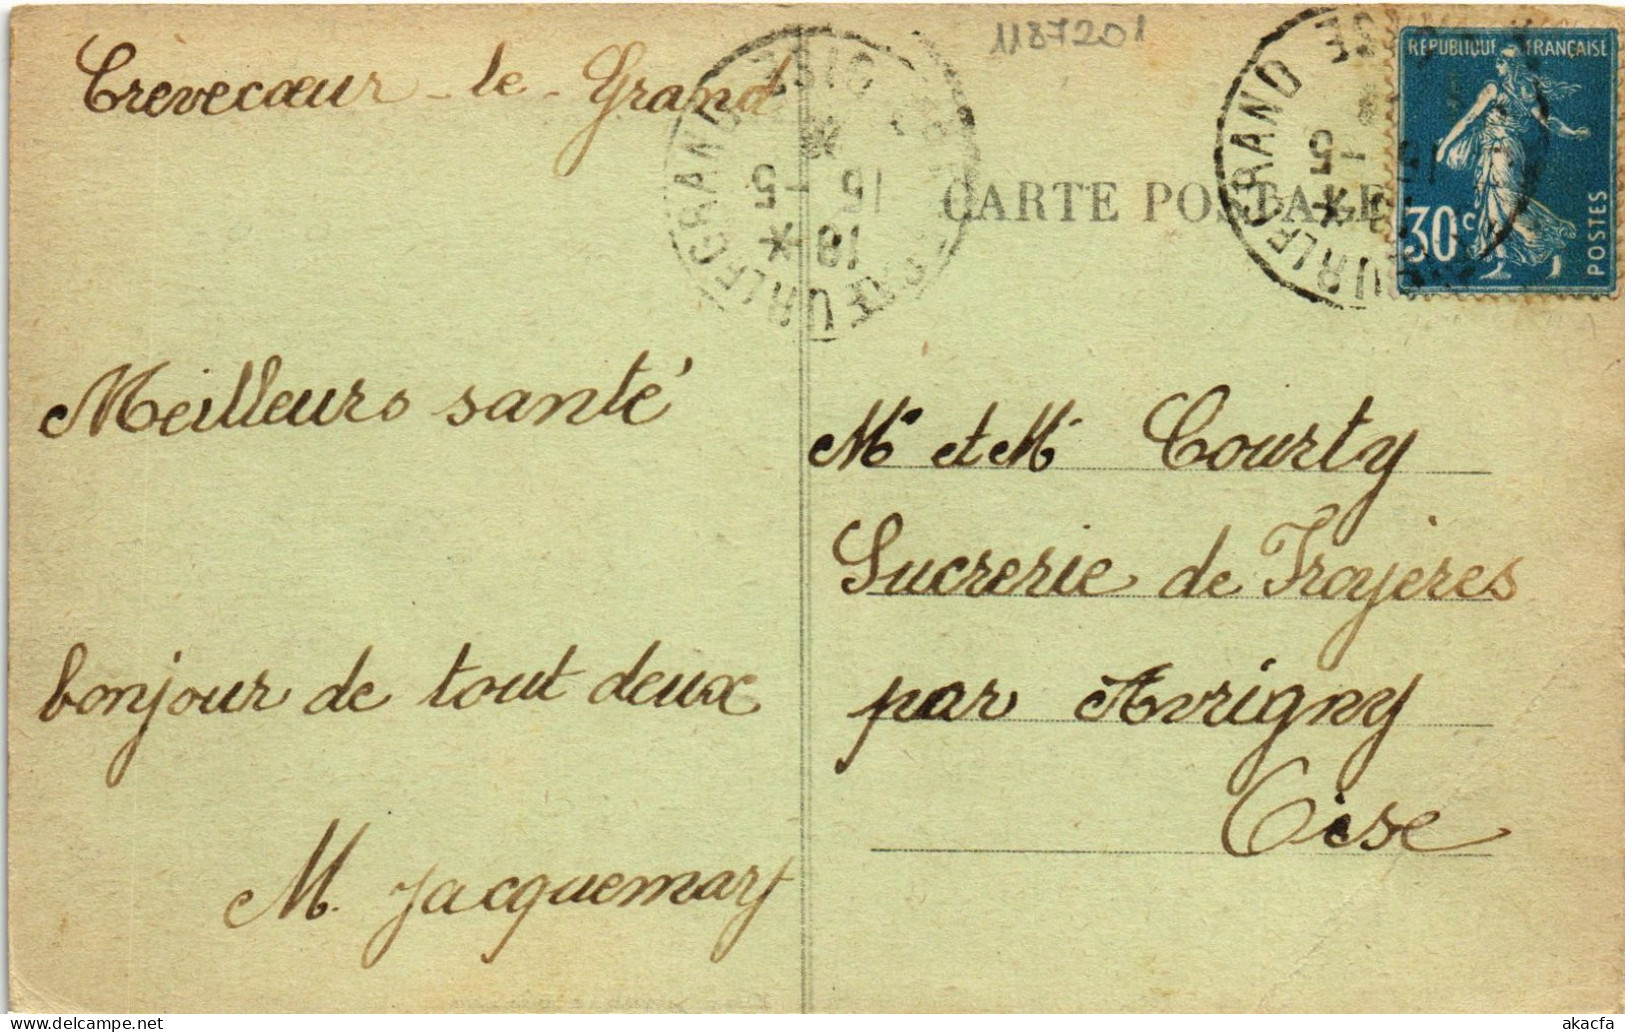 1187201
Crevecœur-le-Grand
CARTE POSTALE
RÉPUBLIQUE FRANÇAISE
30c
POSTES
GRAND
OISE
15 -5
18
ŒUR LE GRAND
Meilleurs santé
bonjour de tout deux
M. Jacquemart
Mr et Me Courty
Sucrerie de Froyères
par Avrigny
Oise
akacfa